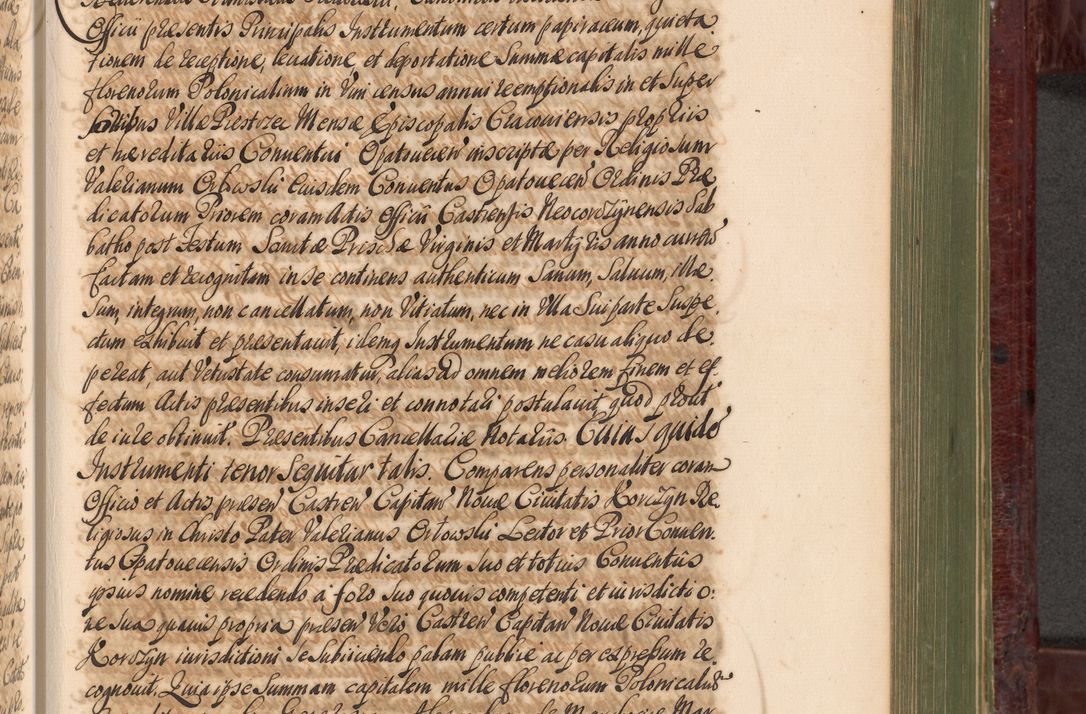 Officii præsentis Principalis Instrumentum certum papiraceum, quieta
tionem de receptione, levatione et deportatione Summæ capitalis mille
florenorum Polonicalium in Vim census annui reemptionalis in et super
fortibus Villæ Piestrzec Mensæ Episcopalis Cracoviensis propriis
et hæreditariis Conventui Opatovecen inscriptæ per Religiosum
Valerianum Orlowski eiusdem Conventus Opatovecen Ordinis Præ
dicatorum Priorem coram Actis Officii Castrensis Neocorczynensis Sab
batho post Festum Sanctæ Priscæ Virginis et Martyris anno currẽ
factam et recognitam in se continens authenticum Sanum, Salvum, illæ
Sum, integrum, non cancellatum, non Vitiatum, nec in Ulla Sui parte Suspe
ctum exhibuit et præsentavit, idemq Instrumentum ne casu aliquo de
pereat, aut Vetustate consumatur, alias ad omnem meliorem finem et ef
fectum Actis præsentibus inseri et connotari postulavit, quod prout
de iure obtinuit. Præsentibus Cancellariæ Notariis. Cuius quidẽ
Instrumenti tenor Sequitur talis. Comparens personaliter coram
Officio et Actis præsen Castren Capitan Novæ Civitatis Korczyn Re
ligiosus in Christo Pater Valerianus Orlowski Lector et Prior Conven
tus Opatovecensis Ordinis Prædicatorum Suo et totius Conventus
ipsius nomine recedendo à foro Suo quovis competenti et iurisdictio:
ne Sua quavis propria præsen Verò Castren Capitan Novæ Civitatis
Korczyn iurisdictioni Se Subiiciendo palam publicè ac per expressum re
cognovit. Quia ipse Summam capitalem mille florenorum Polonicaliũ